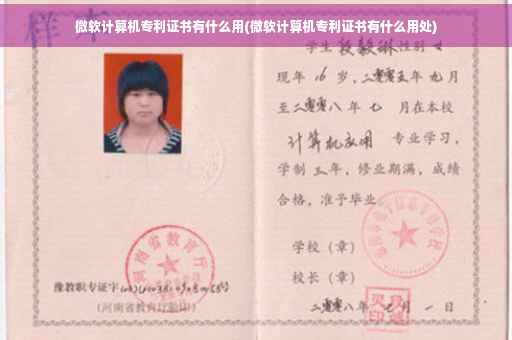 微软计算机专利证书有什么用(微软计算机专利证书有什么用处)
样本
学生 段毅琳 性别 女
现年 16 岁,二零零五年 九月
至二零零八年 七 月在本校
计算机应用 专业学习,
学制 三 年,修业期满,成绩
合格,准予毕业
学校(章)
校长(章)
二零零八年 七 月 一 日
河南省教育厅
豫教职专证字
(河南省教育厅验印)